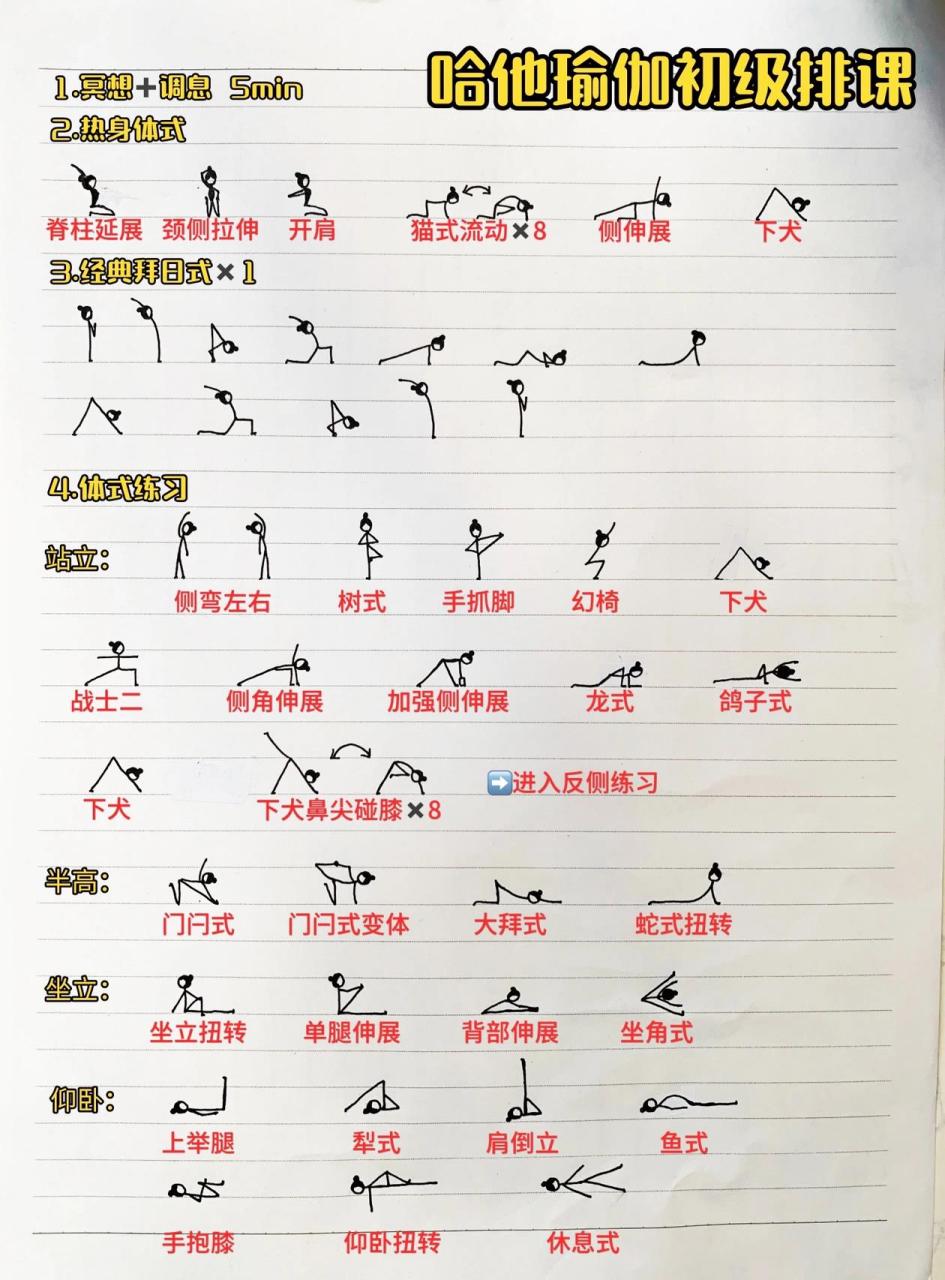 哈他瑜伽初级排课
1.冥想+调息 5min
2.热身体式
脊柱延展 颈侧拉伸 开肩 猫式流动✖8 侧伸展 下犬
3.经典拜日式✖1
4.体式练习
站立：
侧弯左右 树式 手抓脚 幻椅 下犬
战士二 侧角伸展 加强侧伸展 龙式 鸽子式
下犬 下犬鼻尖碰膝✖8 ➡进入反侧练习
半高：
门闩式 门闩式变体 大拜式 蛇式扭转
坐立：
坐立扭转 单腿伸展 背部伸展 坐角式
仰卧：
上举腿 犁式 肩倒立 鱼式
手抱膝 仰卧扭转 休息式